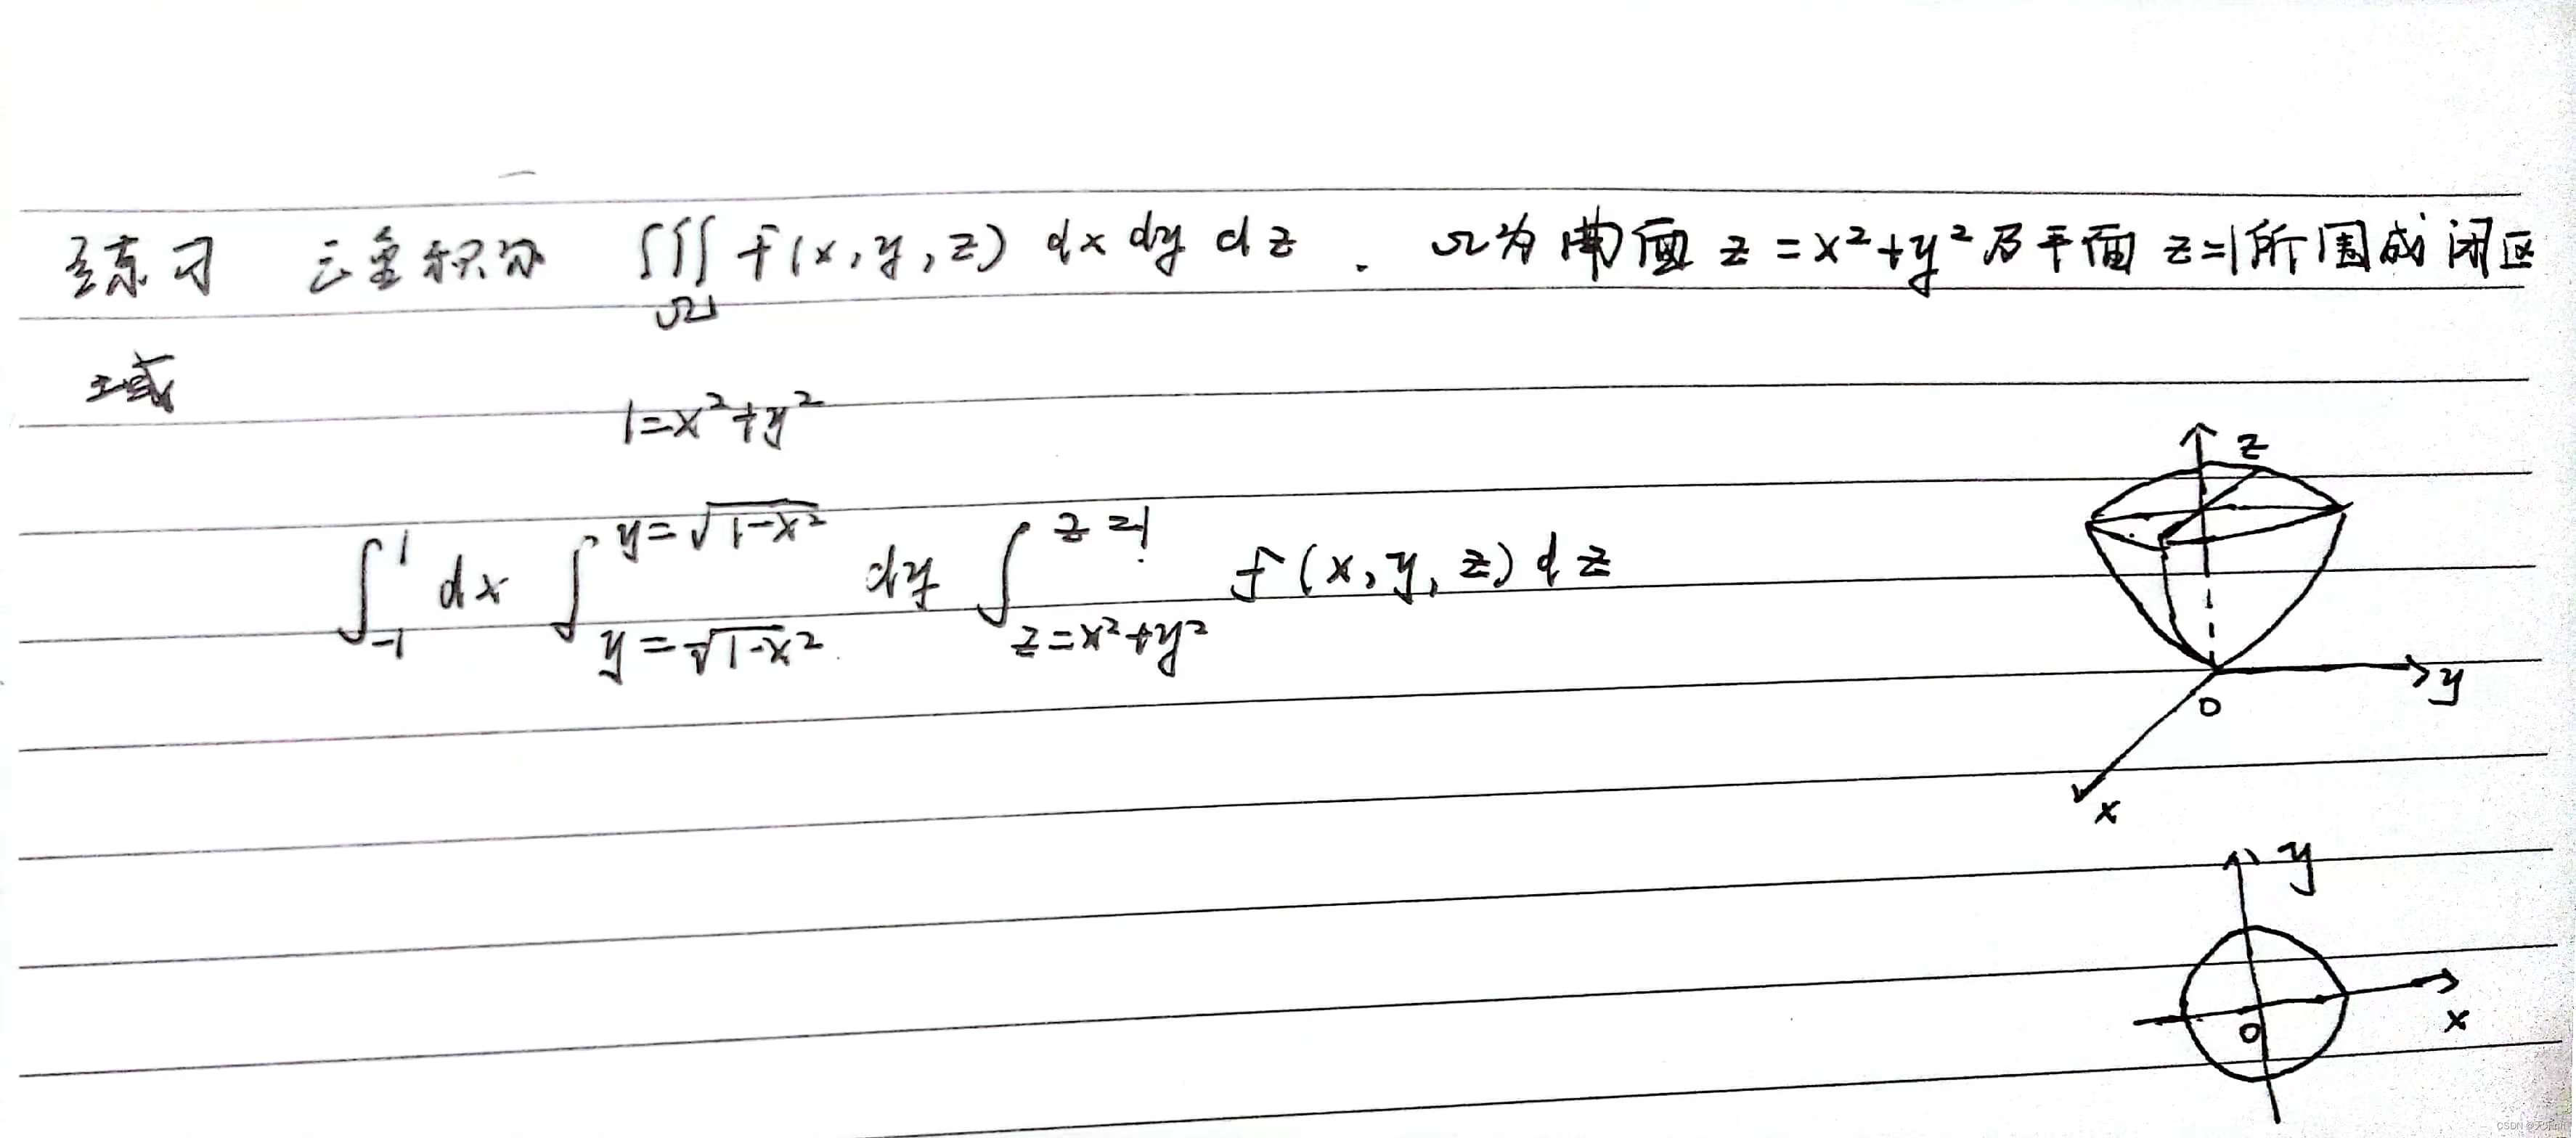 练习 三重积分 ∭_Ω f(x,y,z) dx dy dz . Ω为曲面 z=x²+y²及平面 z=1所围成闭区
域
1=x²+y²
∫_{-1}^{1} dx ∫_{y=-√(1-x²)}^{y=√(1-x²)} dy ∫_{z=x²+y²}^{z=1} f(x,y,z) dz
z
y
0
x
y
0
x